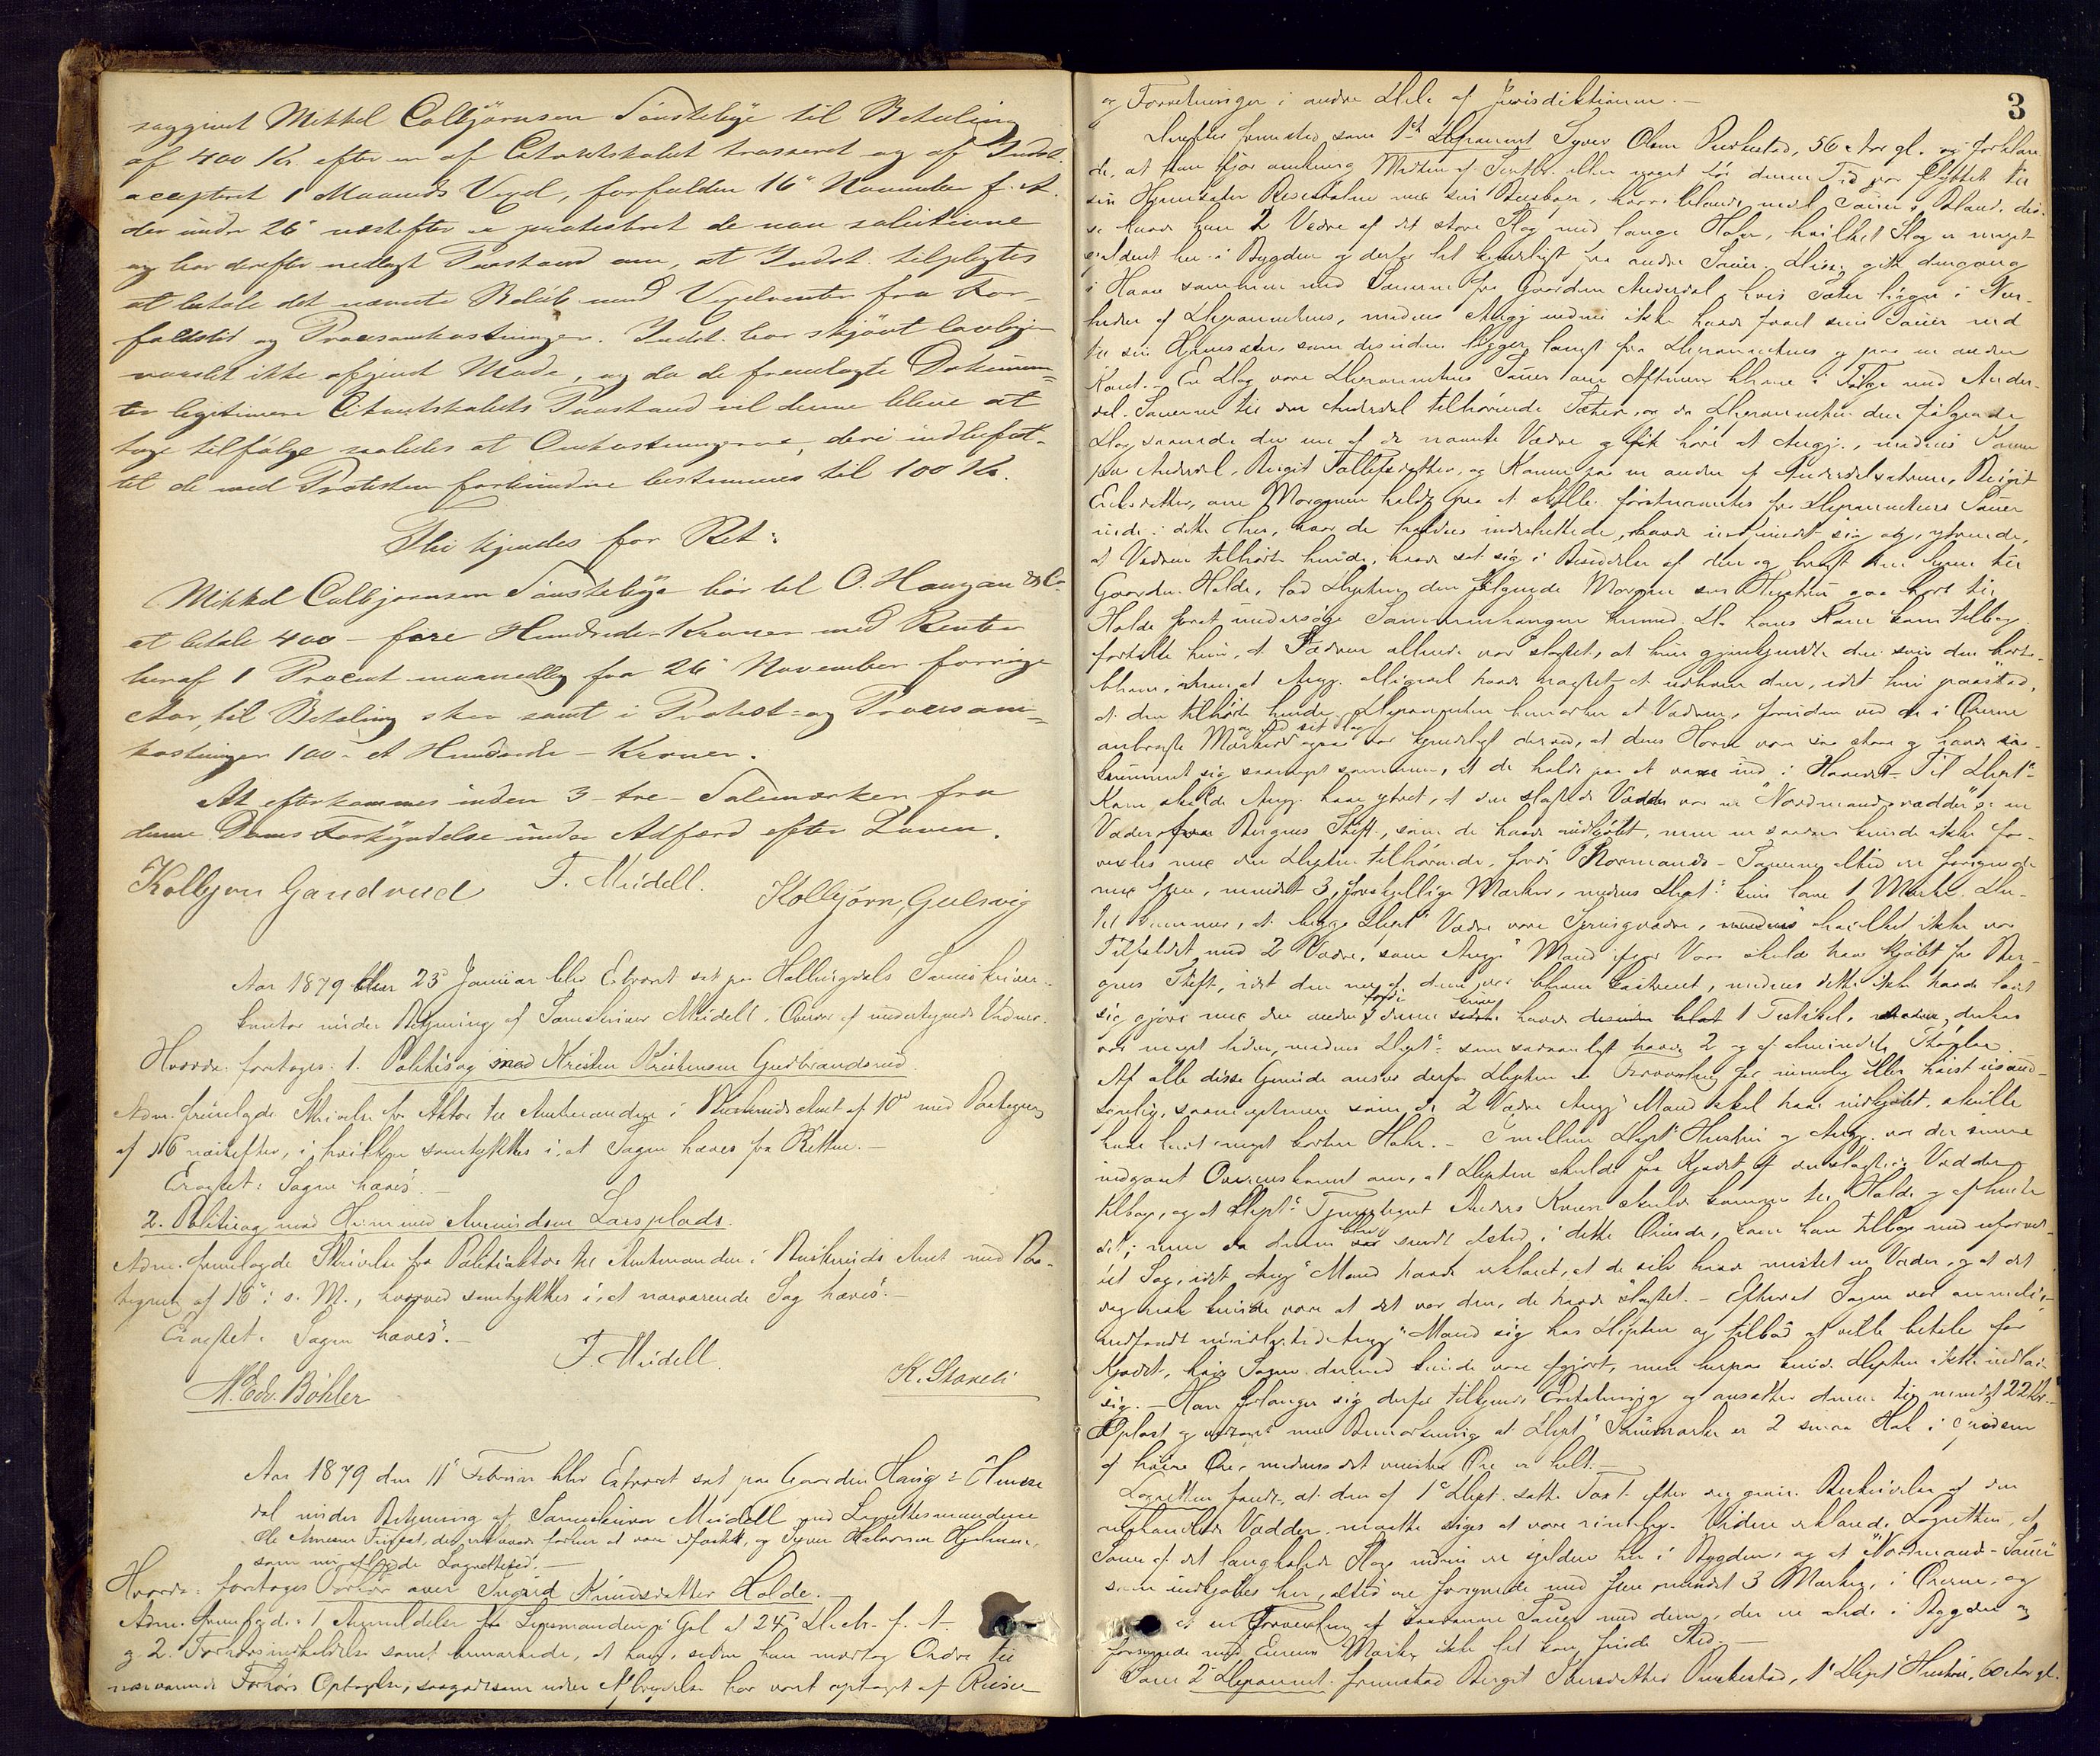 saggivet Mikkel Colbjörnsen Sönstebye til Betaling
af 400 Kr. efter en af Citantskabet trasseret og af Indst.
accepteret 1 Maaneds Vexel, forfalden 16de November f. A.
der under 26de næstefter er protesteret de non solutione
og har derefter nedlagt Paastand om, at Indst. tilpligtes
at betale det nævnte Belöb med Vexelrenter fra For-
faldstid og Procesomkostninger. Indst. har skjönt lovligen
varslet ikke afgivet Möde, og da de fremlagte Dokumen-
ter legitimere Citantskabets Paastand vil denne blive at
tage tilfölge saaledes at Omkostningerne, deri indbefat-
tet de med Protesten forbundne bestemmes til 100 Kr.
Thi kjendes for Ret:
Mikkel Colbjørnsen Sönstebye bör til O. Haugan & Co.
at betale 400 - fire Hundrede - Kroner med Renter
heraf 1 Procent maanedlig fra 26de November forrige
Aar, til Betaling sker samt i Protest- og Procesom-
kostninger 100 - et Hundrede - Kroner.
At efterkommes inden 3 - tre - Solemærker fra
denne Doms Forkyndelse under Adfærd efter Loven.
Kolbjørn Gandrud F. Meidell. Kolbjörn Gulsvig
Aar 1879 den 23de Januar blev Extraret sat paa Hallingdals Sorenskriver-
kontor under Betjening af Sorenskriver Meidell i Overvær af undertegnede Vidner.
Hvorda: foretoges 1. Politisag mod Kristen Kristensen Gudbrandsrud.
Adm. fremlagde Skrivelse fra Aktor til Amtmanden i Buskeruds Amt af 10de med Paategning
af 16 næstefter, i hvilken samtykkes i, at Sagen hæves fra Retten.-
Eragtet: Sagen hæves.
2. Politisag mod Amundsen Larsplads.
Adm. fremlagde Skrivelse fra Politiaktor til Amtmanden i Buskeruds Amt med Paa-
tegning af 16de i s. M., hvorved samtykkes i, at nærværende Sag hæves.-
Eragtet: Sagen hæves.-
F. Meidell.
N. Edv. Böhler K. Staveli
Aar 1879 den 11te Februar blev Extraret sat paa Gaarden Haug i Hemse-
dal under Betjening af Sorenskriver Meidell med Lagrettesmændene
Ole der forhen at være og Halvorsen
som nu aflagde Lagretteed.-
Hvorda: foretoges Forhör over Ingrid Knudsdatter Holde.
Adm. fremlagde: 1, Anmeldelse fra Lensmanden i Gol af 24de Decbr. f. A.
g. 2. samt bemærkede, at han, siden han modtog Ordre til
nærværende Forhörs Optagelse, saagodtsom uden Afbrydelse har været optaget af Reiser
3
og Forretninger i andre Dele af Jurisdiktionen.-
Derefter fremstod som 1ste Deponent Syver Olsen 56 Aar gl. og forklare-
de, at han ifjor omkring Midten af Septbr. eller noget för denne Tid var flyttet til
sin med sin Buskap, hvoriblandt nogle Sauer. Blandt dis-
se havde han 2 Vædre af det store Slag med lange Haler, hvilket Slag er meget
sjeldent her i Bygden og derfor let kjendeligt fra andre Sauer. Disse gik dengang
i Havn sammen med Sauerne fra Gaarden Anderdal, hvis Sæter ligger i Nær-
heden af Deponentens, medens Angj. endnu ikke havde faaet sine Sauer ned
til sin Hjemsæter, som desuden ligger langt fra Deponentens og paa en anden
Kant.- En Dag vare Deponentens Sauer om Aftenen komne i Følge med Ander-
dal-Sauerne til den Anderdal tilhörende Sæter, og da Deponenten den fölgende
Dag savnede den ene af de nævnte Vædre og fik höre at Angj., medens Konen
paa Anderdal, Birgit Tollefsdatter, og Konen paa en anden af Anderdalsætrene, Birgit
Eriksdatter, om Morgenen holdt paa at skille förstnævntes fra Deponentens Sauer
hvor de holdtes indesluttede, havde indfundet sig og, ytrende,
at Vædren tilhörte hende, havde sat sig i Besiddelse af den og bragt den hjem til
Gaarden Holde, lod Depten den fölgende Morgen sin Hustru gaa bort til
Holde forat undersöge Sammenhængen hermed. Da hans Kone kom tilbage
fortalte hun, at Vædren allerede var slagtet, at hun gjenkjendte den som den bort-
komne, men at Angj. alligevel havde nægtet at udlevere den, idet hun paastod,
at den tilhörte hende. Deponenten bemærker at Vædren, foruden ved de i Örerne
og ved sit Slag
anbragte Mærker ogsaa var kjendeligt derved, at dens Horn vare saa store og havde
krummet sig saameget sammen, at de holdt paa at voxe ind i Hovedet.- Til Deptns
Kone skulde Angj. have ytret, at den slagtede Vædder var en "Nordmandsvædder" ɔ: en
Væder fra Bergens Stift, som de havde indkjöbt, men en saadan kunde ikke for-
vexles med den Depten tilhörende, fordi Nordmands-Sauerne altid ere forsynede
med flere, mindst 3, forskjellige Mærker, medens Deptns kun have 1 Mærke. Der-
til kommer, at begge Deptns Vædre vare hvilket ikke var
Tilfældet med 2 Vædre, som Angjs Mand ifjor Vaar skulde have kjöbt fra Ber-
gens Stift, idet den ene af dem var bleven kastreret, medens dette ikke havde ladet
fordi kun
sig gjöre med den anden, denne havde 1 Testikel, derhos
var meget liden, medens Deptns som sædvanligt havde 2 og af almindelig Störrelse.
Af alle disse Grunde anser derfor Depten en Forvexling for umulig eller höist usand-
synlig, saameget mere som de 2 Vædre Angjs Mand skal have indkjöbt, skulle
have havt meget kortere Haler.- Imellem Deptns Hustru og Angj. var der senere
indgaaet Overenskomst om, at Depten skulde faa Kjödet af den slagtede Vædder
tilbage, og at Deptns Tjenestegut Anders skulde komme til Holde og afhente
blev
det; men da denne var sendt afsted i dette Örinde, kom han tilbage med uforret-
tet Sag, idet Angjs Mand havde erklæret, at de selv havde mistet en Væder, og at det
nok kunde være at det var den, de havde slagtet.- Efterat Sagen var anmeldt,
indfandt Angjs Mand sig hos Depten og tilböd at ville betale for
Kjödet, hvis Sagen dermed kunde være afgjort, men herpaa kunde Depten ikke indlade
sig.- Han forlanger sig derfor tilkjendt Erstatning og ansætter denne til mindst 22 Kr.-
Oplæst og vedtaget med Bemærkning at Deptns Sauemærke er 2 smaa Hak i
af höire Öre, medens det venstre Öre er helt.-
Lagretten fandt, at den af 1ste Dept. satte Taxt efter den givne Beskrivelse af den
omhandlede Vædder maatte siges at være rimelig. Videre erklærede Lagretten, at
Sauer af det langhalede Slags endnu er sjeldne her i Bygden, og at "Nordmands-Sauer"
som indkjöbes her, altid ere forsynede med flere, mindst 3 Mærker, i Örerne, og
at en Forvexling af saadanne Sauer med dem, der ere i Bygden og
forsynede med Eierens Mærke, ikke let kan finde Sted.-
Som 2den Deponent fremstod Birgit 1ste Deptns Hustru, 60 Aar gl.